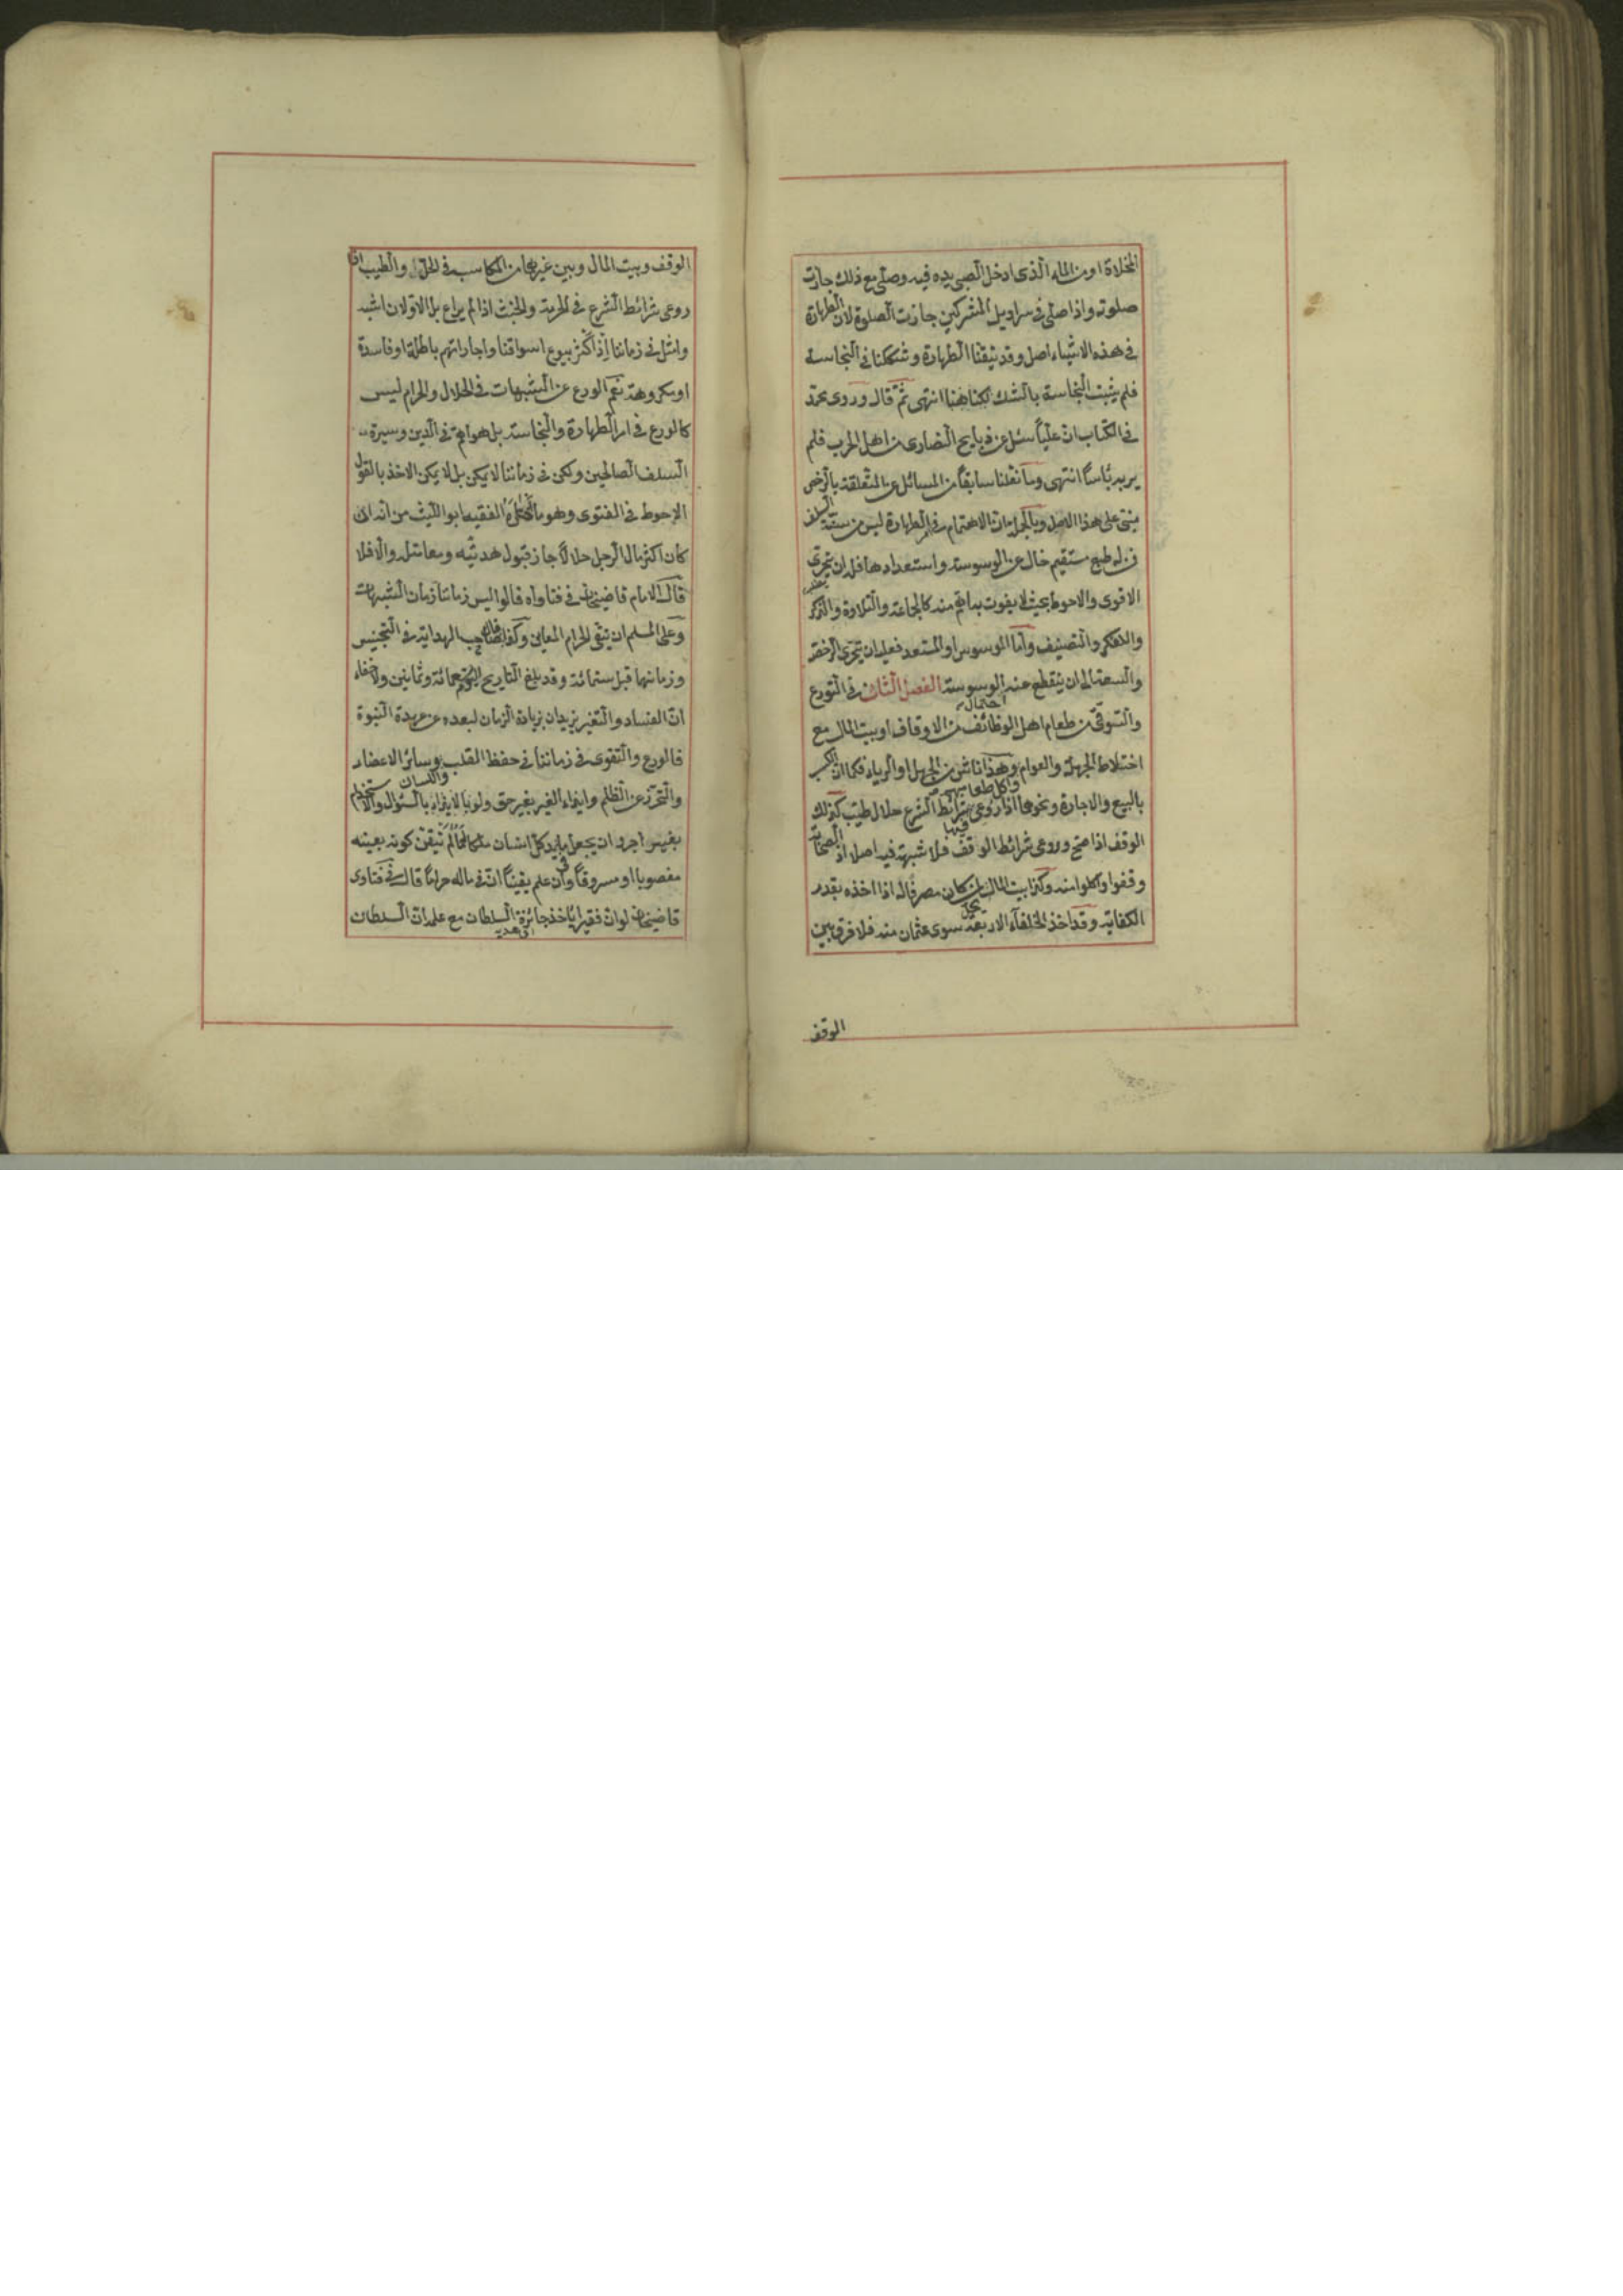 المخلاة او من الماء الذى ادخل الصبى يده فيه وصلى مع ذلك جازت
صلوته واذا صلى فى سراويل المشركين جازت الصلوة لان الطهارة
فى هذه الاشياء اصل وقد تيقنا الطهارة وشككنا فى النجاسة
فلم يثبت النجاسة بالشك كذا هنا انتهى ثم قال وروى محمد
فى الكتاب ان عليا سئل عن ذبايح النصارى من اهل الحرب فلم
ير به بأسا انتهى وما نقلنا سابقا من المسائل المتعلقة بالرخص
مبنى على هذا الاصل وبالجملة ان الاهتمام فى امر الطهارة ليس من سنة السلف
فمن له طبع مستقيم خال عن الوسوسة واستعدادها فله ان يتحرى
الاقوى والاحوط بحيث لا يفوت به اهم منه كالجماعة والتلاوة والذكر
والتفكر والتصنيف واما الموسوس او المستعد فعليه ان يتحرى الرخصة
والسعة الى ان ينقطع عنه الوسوسة الفصل الثالث فى التورع
والتوقى من طعام اهل الوظائف من الاوقاف او بيت المال مع احتمال
اختلاط الجهلة والعوام وهذا ناش من الجهل او الرياء فكما ان الكسب
واكل طعامهم
بالبيع والاجارة ونحوهما اذا روعى شرائط الشرع حلال طيب كذلك
فيها
الوقف اذا صح وروعى شرائط الواقف فلا شبهة فيه اصلا اذ الصحابة
وقفوا واكلوا منه وكذا بيت المال لمن كان مصرفا له اذا اخذه بقدر
الكفاية وقد اخذ الخلفاء الاربعة سوى عثمان منه فلا فرق بين
الوقف
الوقف وبيت المال وبين غيرهما من المكاسب فى الحل والطيب اذا
روعى شرائط الشرع فى الحرمة والخبث اذا لم يراع بل الاولان اشبه
وامثل فى زماننا اذ اكثر بيوع اسواقنا واجاراتهم باطلة او فاسدة
او مكروهة نعم الورع عن الشبهات فى الحلال والحرام ليس
كالورع فى امر الطهارة والنجاسة بل هو اهم فى الدين وسيرة
السلف الصالحين ولكن فى زماننا لا يمكن بل لا يمكن الاخذ بالقول
الاحوط فى الفتوى وهو ما اختاره الفقيه ابو الليث من انه ان
كان اكثر مال الرجل حلالا جاز قبول هديته ومعاملته والا فلا
قال الامام قاضيخان فى فتاواه قالوا ليس زماننا زمان الشبهات
وعلى المسلم ان يتقى الحرام المعاين وكذا قال صاحب الهداية فى التجنيس
وزمانهما قبل ستمائة وقد بلغ التاريخ اليوم تسعمائة وثمانين ولا خفاء
ان الفساد والتغير يزيدان بزيادة الزمان لبعده عن عهد النبوة
فالورع والتقوى فى زماننا فى حفظ القلب وسائر الاعضاء
واللسان
والتحرز عن الظلم وايذاء الغير بغير حق ولو بالسؤال والاستخدام
بغير اجر وان يجعل ما فى يد كل انسان ملكا له ما لم يتيقن كونه بعينه
مغصوبا او مسروقا وان علم يقينا ان فى ماله حراما قال فى فتاوى
قاضيخان لو ان فقيرا يأخذ جائزة السلطان مع علمه ان السلطان
اى هدية